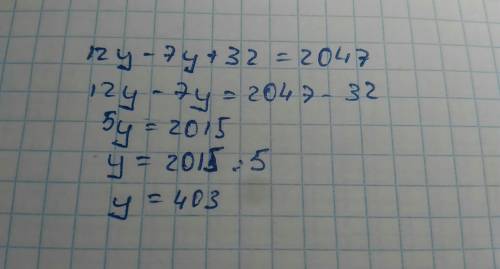 12y - 7y + 32 = 2047
12y - 7y = 2047 - 32
5y = 2015
y = 2015 : 5
y = 403